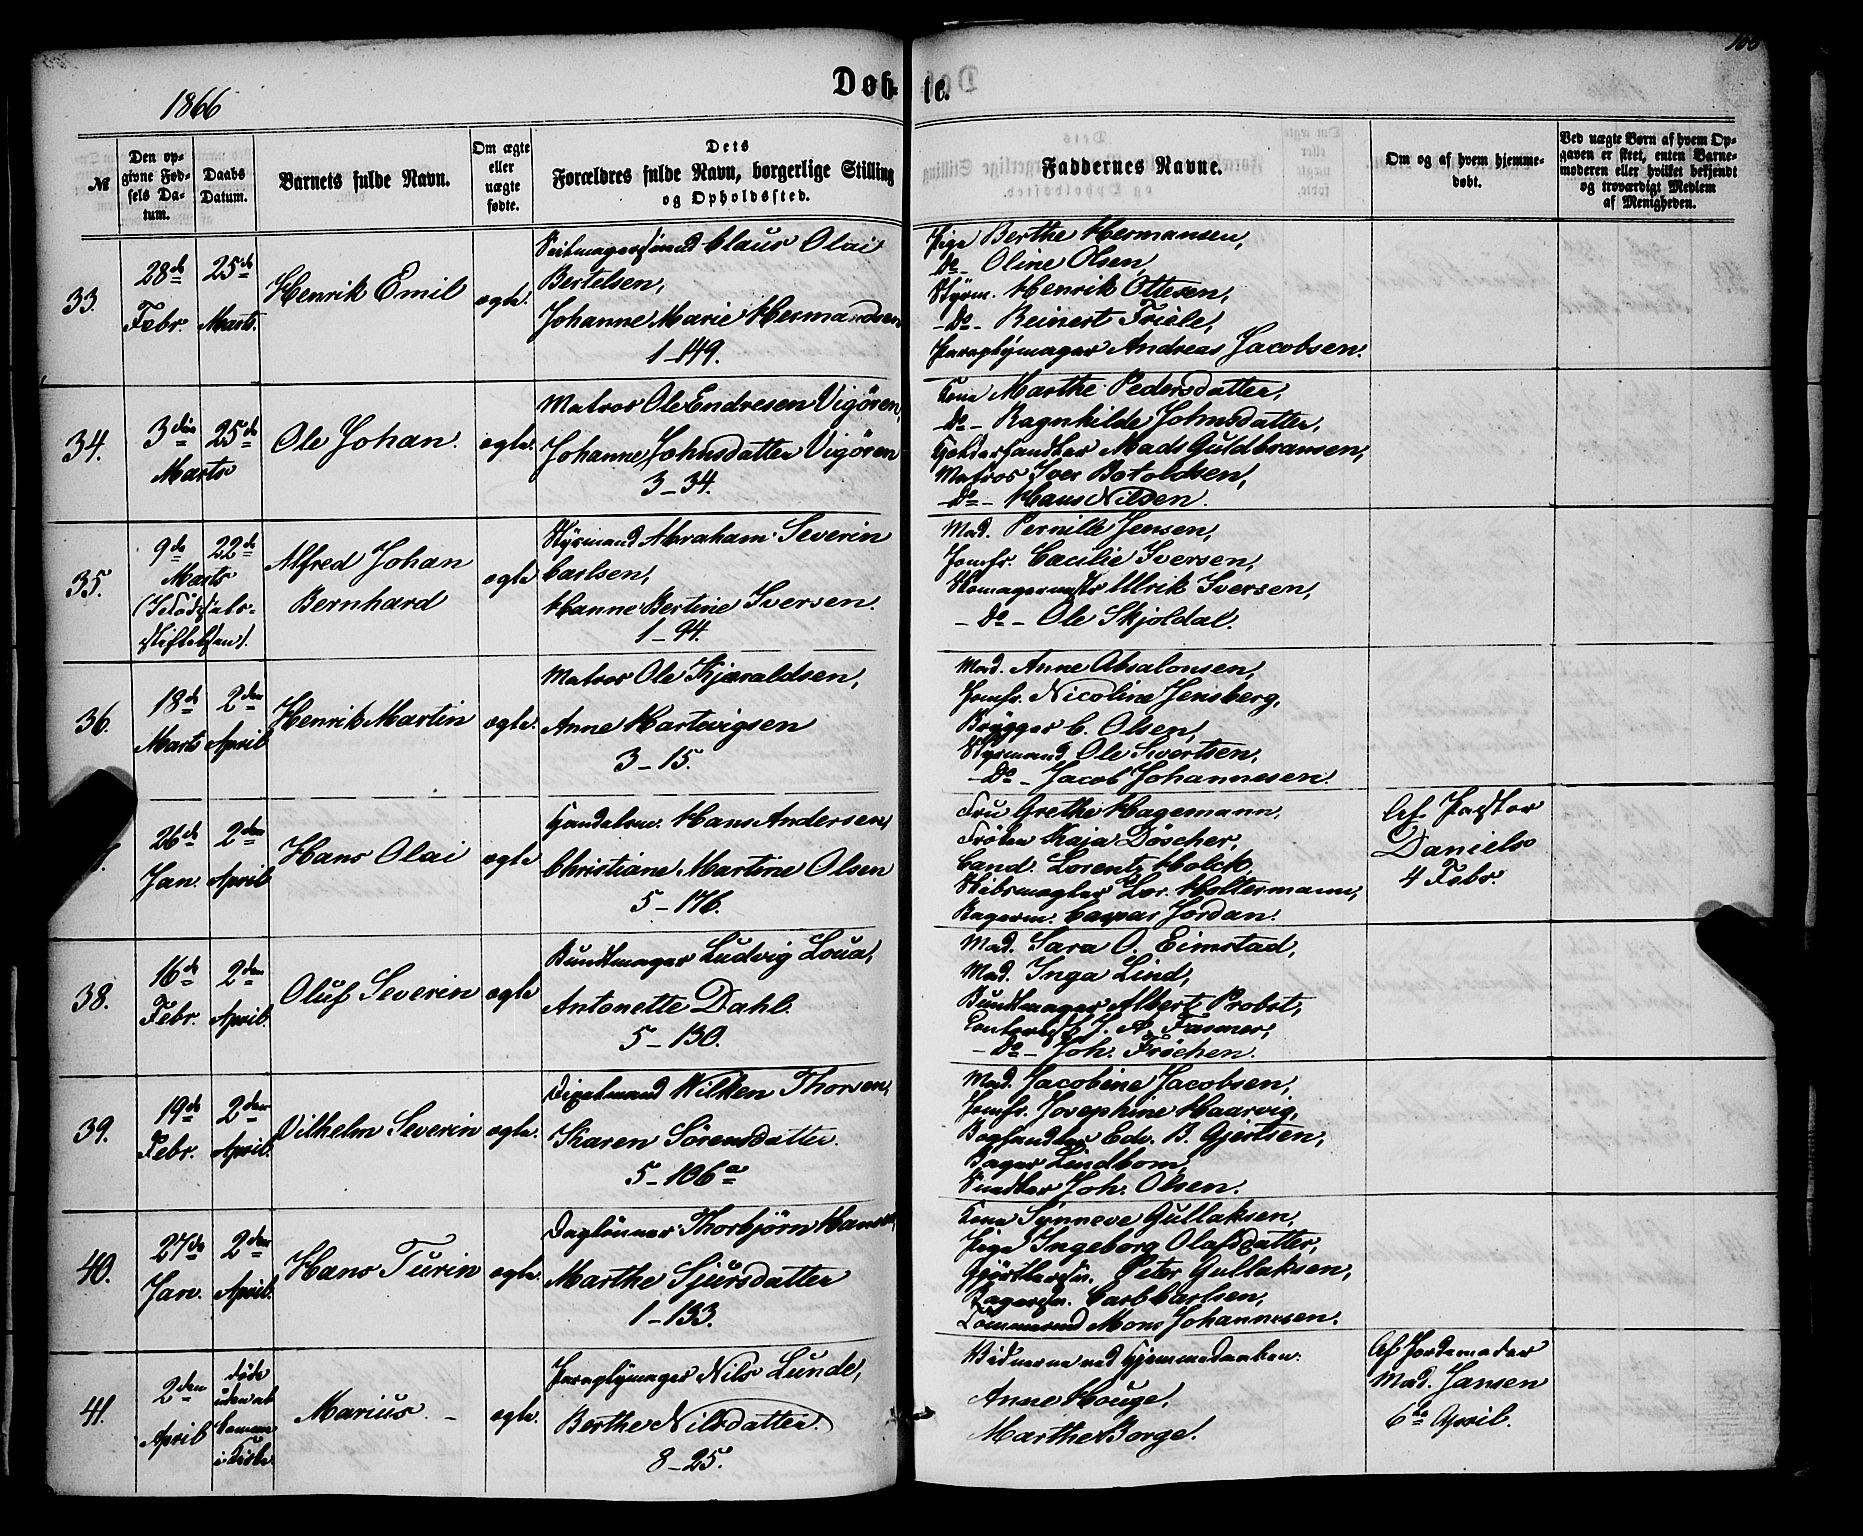 1866
Døb-
te.
№
Den op-
givne Fød-
sels Da-
tum.
Daabs
Datum.
Barnets fulde Navn.
Om ægte
eller
uægte
fødte.
Dets
Forældres fulde Navn, borgerlige Stilling
og Opholdssted.
Faddernes Navne.
Om og af hvem hjemme-
døbt.
Ved uægte Børn af hvem Op-
gaven er skeet, enten Barne-
moderen eller hvilket bekjendt
og troværdigt Medlem
af Menigheden.
33.
28de
Febr.
25de
Marts.
Henrik Emil
ægte.
Seilmagersvend Claus Olai
Bertelsen,
Johanne Marie Hermandsen
1–149.
Pige Berthe Hermansen,
Do – Oline Olsen,
Styrm. Henrik Ottesen,
– Do – Reinert Friele,
Paraplymager Andreas Jacobsen.
34.
3die
Marts
25de
Ole Johan.
ægte.
Matros Ole Endresen Vigören,
Johanne Johnsdatter Vigören
3–34.
Kone Marthe Pedersdatter,
Do – Ragnhilde Johnsdatter,
Mads Guldbransen,
Matros Iver Botoldsen,
– Do – Hans Nilsen.
35.
9de
Marts
22de
(I Födselsstiftelsen).
Alfred Johan
Bernhard
ægte
Styrmand Abraham Severin
Carlsen,
Hanne Bertine Iversen.
1–94.
Mad. Pernille Jensen,
Jomfr. Cacilie Iversen,
Skomagermstr Ulrik Iversen,
– Do – Ole Skjoldal.
36.
18de
Marts
2den
April
Henrik Martin
ægte.
Matros Ole Kjæraldsen,
Anne Hartvigsen
3–15.
Mad. Anne Absalonsen,
Jomfr. Nicoline Jensberg,
Brygger C. Olsen,
Styrmand Ole Sivertsen,
– Do – Jacob Johannesen.
26de
Jan.
2den
April
Hans Olai
ægte
Handelsm. Hans Andersen,
Christiane Martine Olsen
5–176.
Fru Grethe Hagemann,
Fröken Kaja Döscher,
Cand. Lorentz Holck,
Skibsmægler Lor. Holtermann,
Bagerm. Caspar Jordan.
Af Pastor
Daniels
4 Febr.
38.
16de
Febr.
2den
April.
Oluf Severin
ægte
Bundtmager Ludvig Loua,
Antonette Dahl.
5–130.
Mad. Sara O. Eimstad,
Mad. Inga Lind,
Bundtmager Albert Probst,
J. A. Fasmer,
– Do – Joh. Fröchen.
39.
19de
Febr.
2den
April.
Vilhelm Severin
ægte.
Wilken Thorsen,
Karen Sörensdatter.
5–106a
Mad. Jacobine Jacobsen,
Jomfr. Josephine Haarvig,
Boghandler Edv. B. Gjertsen,
Bager Lindbom,
Snedker Joh. Olsen.
40.
27de
Jan.
2den
April.
Hans Turin
ægte.
Daglönner Thorbjörn Hansen,
Marthe Sjursdatter
1–133.
Kone Synneve Gullaksen,
Pige Ingeborg Olafsdatter,
Peter Gullaksen,
Bagersv. Carl Carlsen,
Tömmermd Mons Johannesen.
41.
2den
April
døde
uden at
komme
i Kirke.
Marius. –
ægte.
Paraplymager Nils Lunde,
Berthe Nilsdatter.
8–25.
Vidnerne ved Hjemmedaaben:
Anne Houge,
Marthe Borge.
Af Jordemoder
Mad. Jansen
6te April.